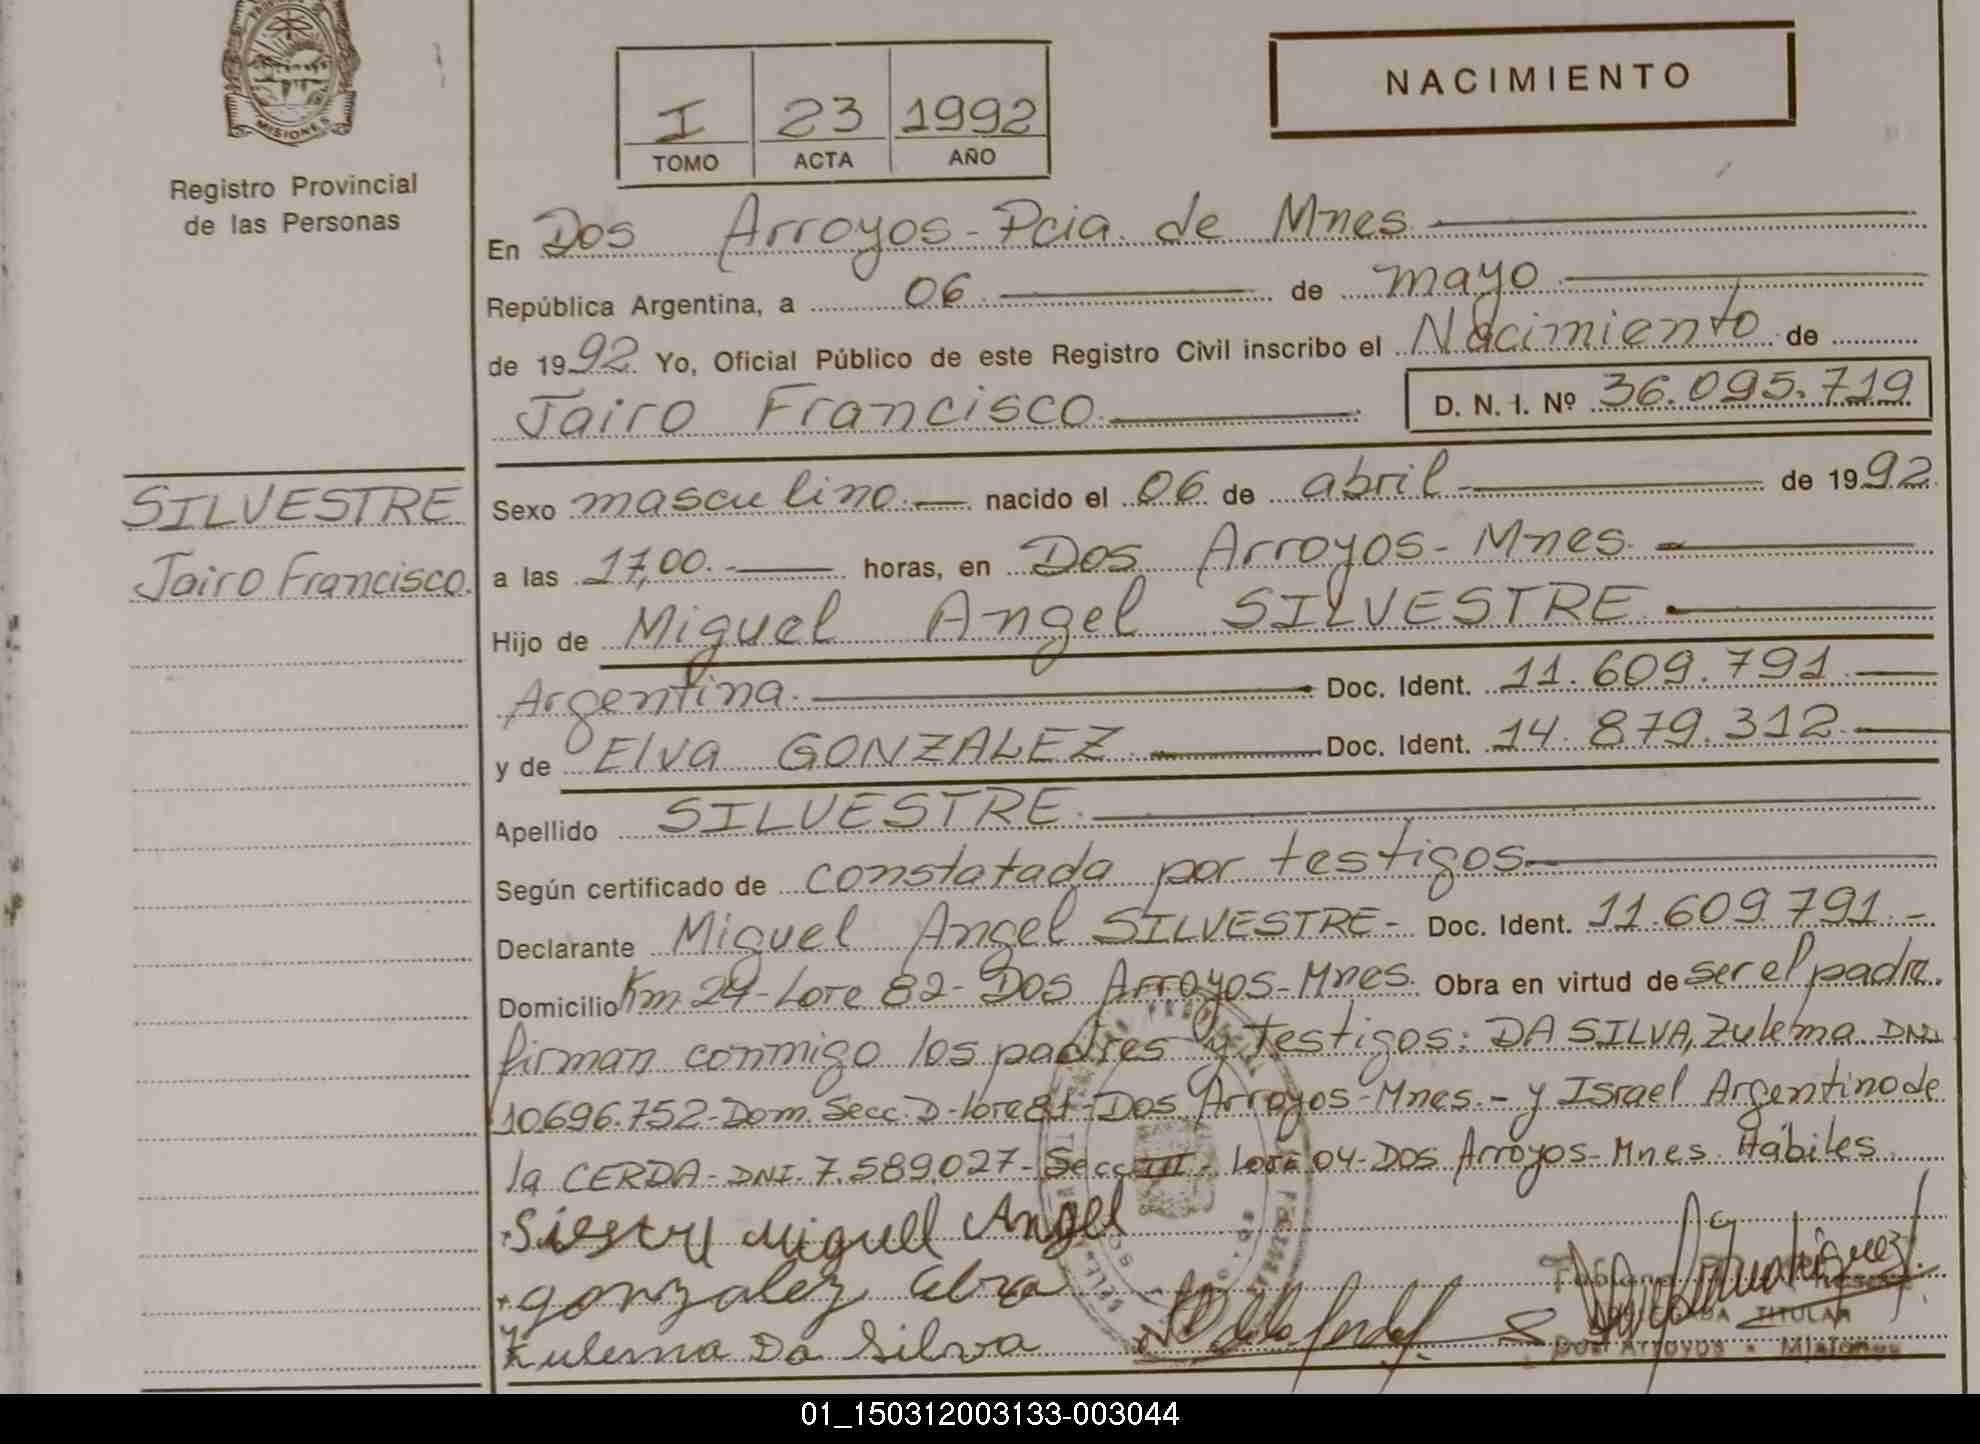 MISIONES
Registro Provincial
de las Personas
I 23 1992
TOMO ACTA AÑO
NACIMIENTO
En Dos Arroyos - Pcia. de Mnes
República Argentina, a 06 de mayo
de 1992. Yo, Oficial Público de este Registro Civil inscribo el Nacimiento de
Jairo Francisco D. N. I. Nº 36.095.719
SILVESTRE
Jairo Francisco.
Sexo masculino. nacido el 06 de abril de 1992
a las 17,00. horas, en Dos Arroyos - Mnes.
Hijo de Miguel Angel SILVESTRE.
Argentina. Doc. Ident. 11.609.791
y de Elva GONZALEZ Doc. Ident. 14.879.312
Apellido SILVESTRE.
Según certificado de constatada por testigos
Declarante Miguel Angel SILVESTRE - Doc. Ident. 11.609.791.-
Domicilio Km 24 - Lote 82 - Dos Arroyos - Mnes. Obra en virtud de ser el padre.
firman conmigo los padres y testigos: DA SILVA, Zulema DNI.
10.696.752 - Dom. Secc. D - Lote 81 - Dos Arroyos - Mnes. - y Israel Argentino de
la CERDA - DNI. 7.589.027 - Secc III - Lote 04 - Dos Arroyos - Mnes. Hábiles.
Siestre Miguell Angel
gonzalez Elva
Zulema Da Silva
TITULAR
Dos Arroyos - Misiones
01_150312003133-003044